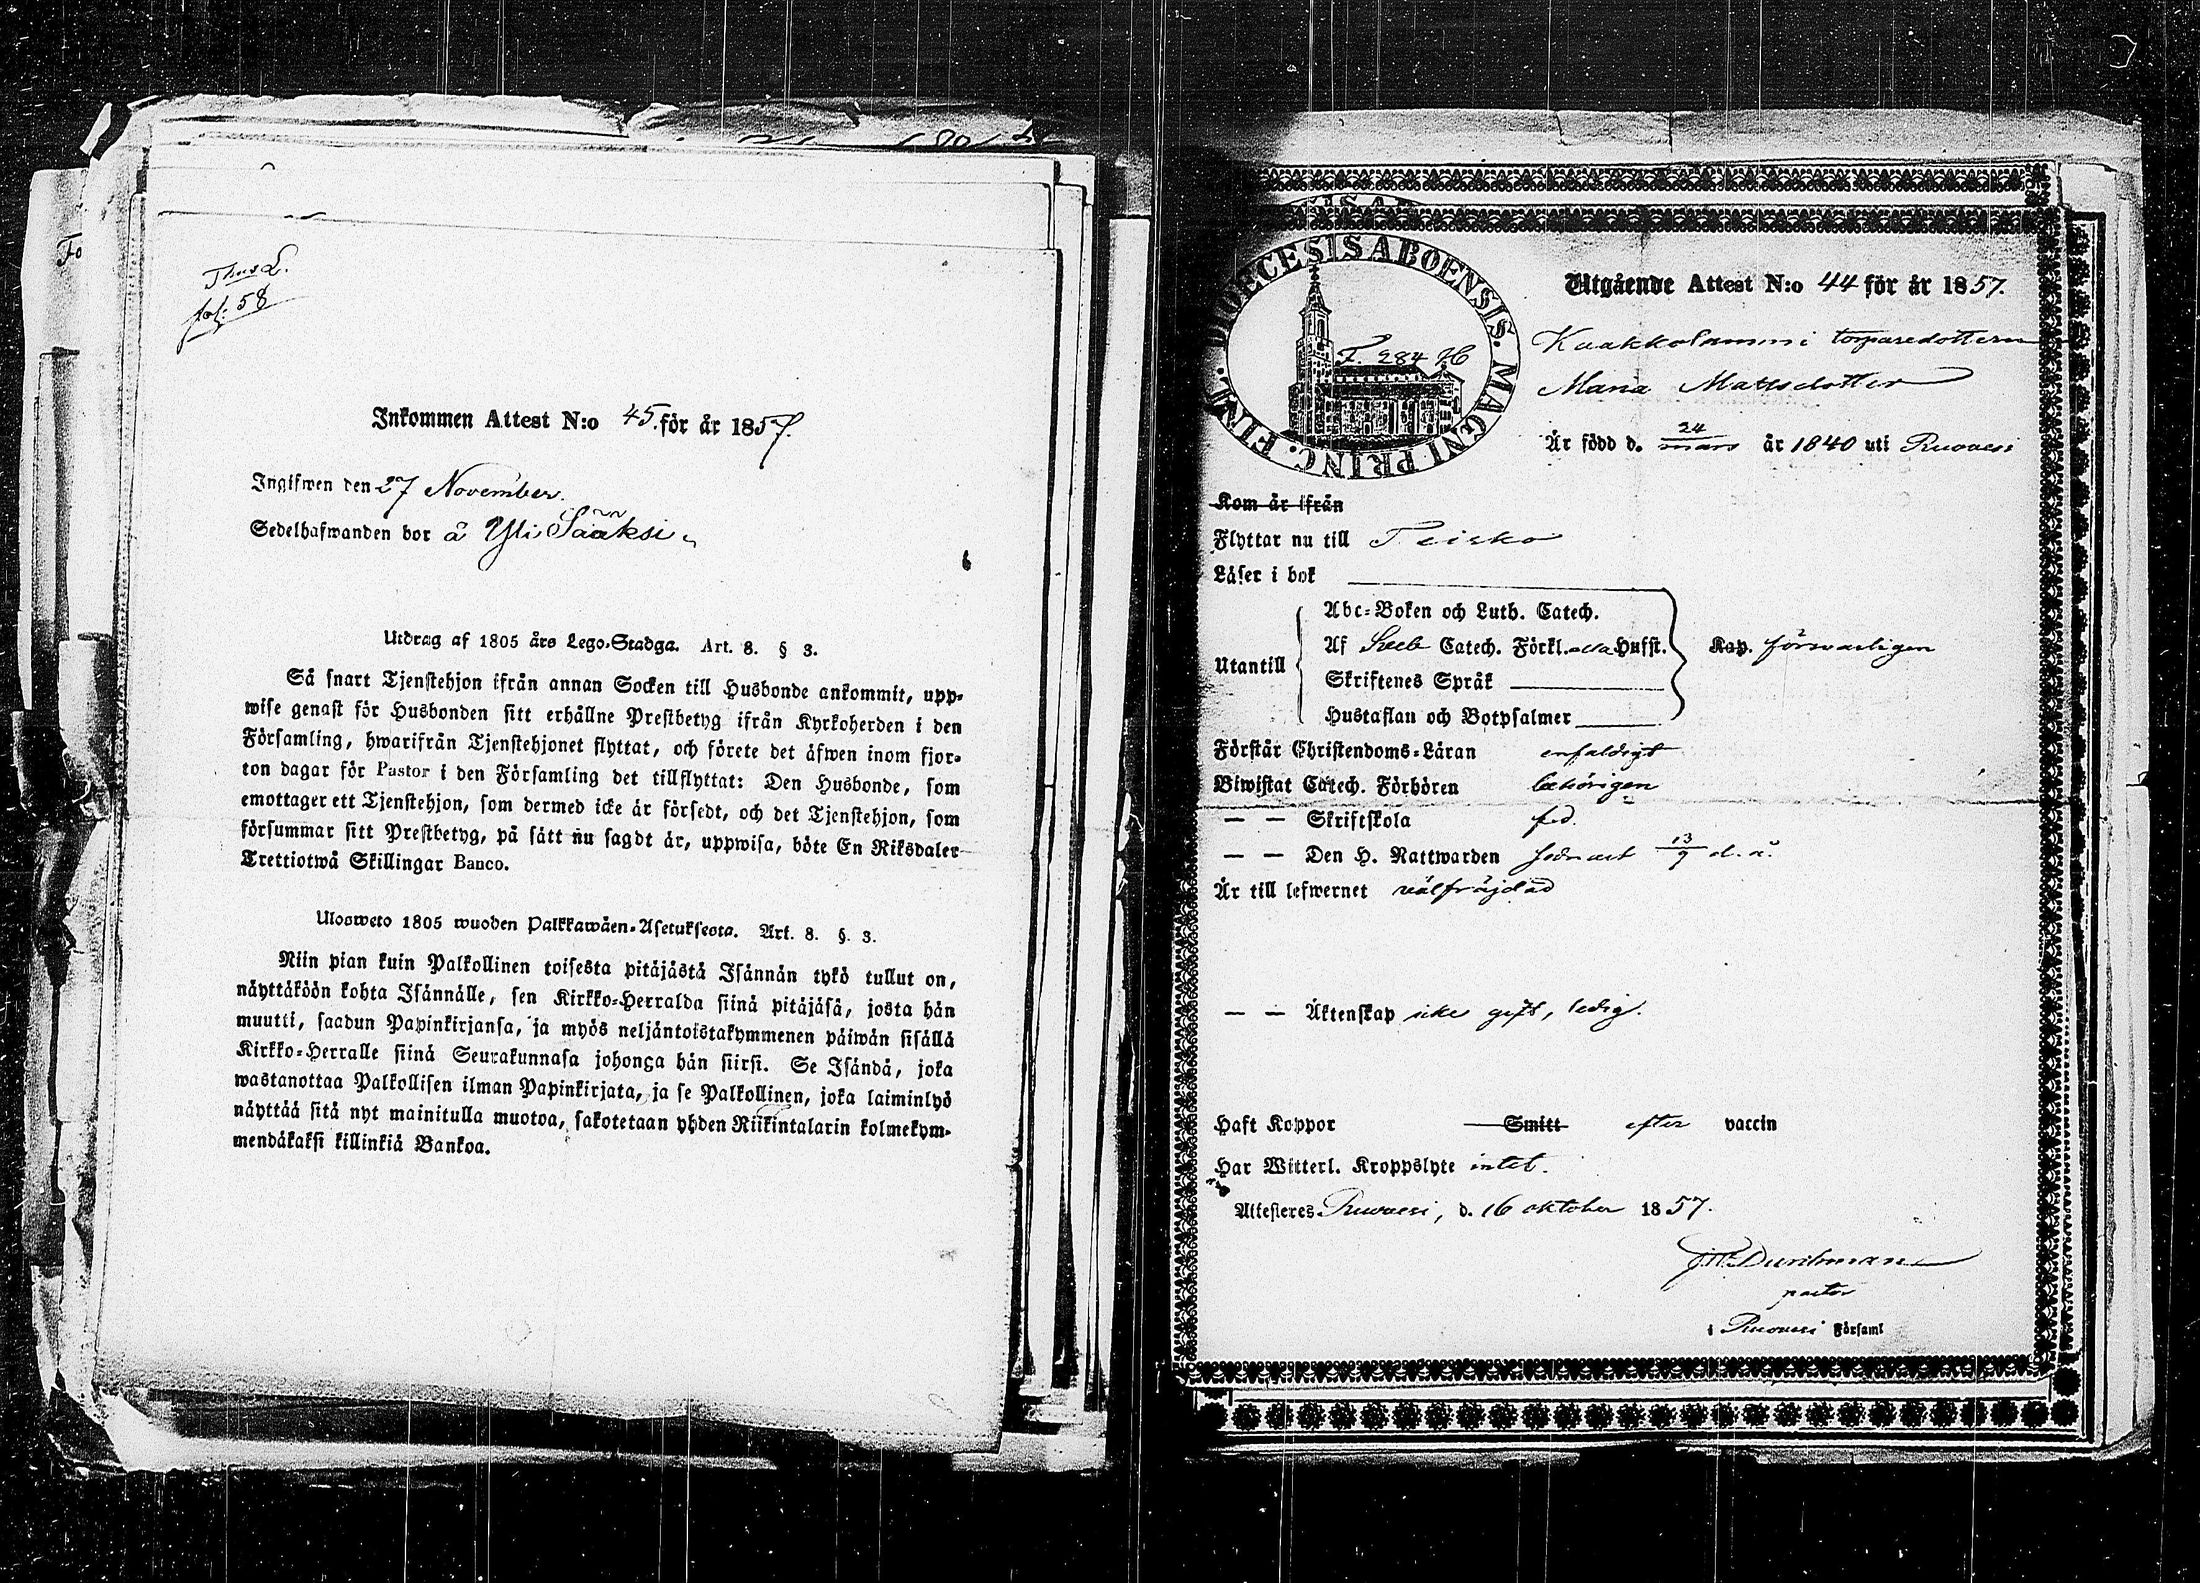 fol: 58
Inkommen Attest N:o 45. för år 1857.
Ingifwen den 27 November.
Sedelhafwanden bor å Yli Sääksi
Utdrag af 1805 års Lego-Stadga. Art. 8. § 3.
Så snart Tjenstehjon ifrån annan Socken till Husbonde ankommit, upp-
wise genast för Husbonden sitt erhållne Prestbetyg ifrån Kyrkoherden i den
Församling, hwarifrån Tjenstehjonet flyttat, och förete det äfwen inom fjor-
ton dagar för Pastor i den Församling det tillflyttat: Den Husbonde, som
emottager ett Tjenstehjon, som dermed icke är försedt, och det Tjenstehjon, som
försummar sitt Prestbetyg, på sätt nu sagdt är, uppwisa, böte En Riksdaler
Trettiotwå Skillingar Banco.
Ulosweto 1805 wuoden Palkkawäen-Asetuksesta. Art. 8. §. 3.
Niin pian kuin Palkollinen toisesta pitäjästä Isännän tykö tullut on,
näyttäköön kohta Isännälle, sen Kirkko-Herralda siinä pitäjäsä, josta hän
muutti, saadun Papinkirjansa, ja myös neljäntoistakymmenen päiwän sisällä
Kirkko-Herralle siinä Seurakunnasa johonga hän siirsi. Se Isändä, joka
wastanottaa Palkollisen ilman Papinkirjata, ja se Palkollinen, joka laiminlyö
näyttää sitä nyt mainitulla muotoa, sakotetaan yhden Riikintalarin kolmekym-
mendäkaksi killinkiä Bankoa.
DIOECESIS ABOENSIS. MAGNI PRINC. FINL.
F. 284
Utgående Attest N:o 44 för år 1857.
Kaakkolammi torparedottern
Maria Mattsdotter
Är född d. 24 mars år 1840 uti Ruovesi
Kom år ifrån
Flyttar nu till Teisko
Läser i bok
Utantill
Abc-Boken och Luth. Catech.
Af Sveb Catech. Förkl. Husst.
Kap. försvarligen
Skriftenes Språk
Hustaflan och Botpsalmer
Förstår Christendoms-Läran enfaldigt
Biwistat Catech. Förhören behörigen
— — Skriftskola
— — Den H. Nattwarden sednast 13/9 d. å.
Är till lefwernet välfräjdad
— — Äktenskap icke gift, ledig.
Haft Koppor Smitt efter vaccin
Har Witterl. Kroppslyte intet.
Attesteres Ruovesi, d. 16 oktober 1857.
pastor
i Ruovesi Församl